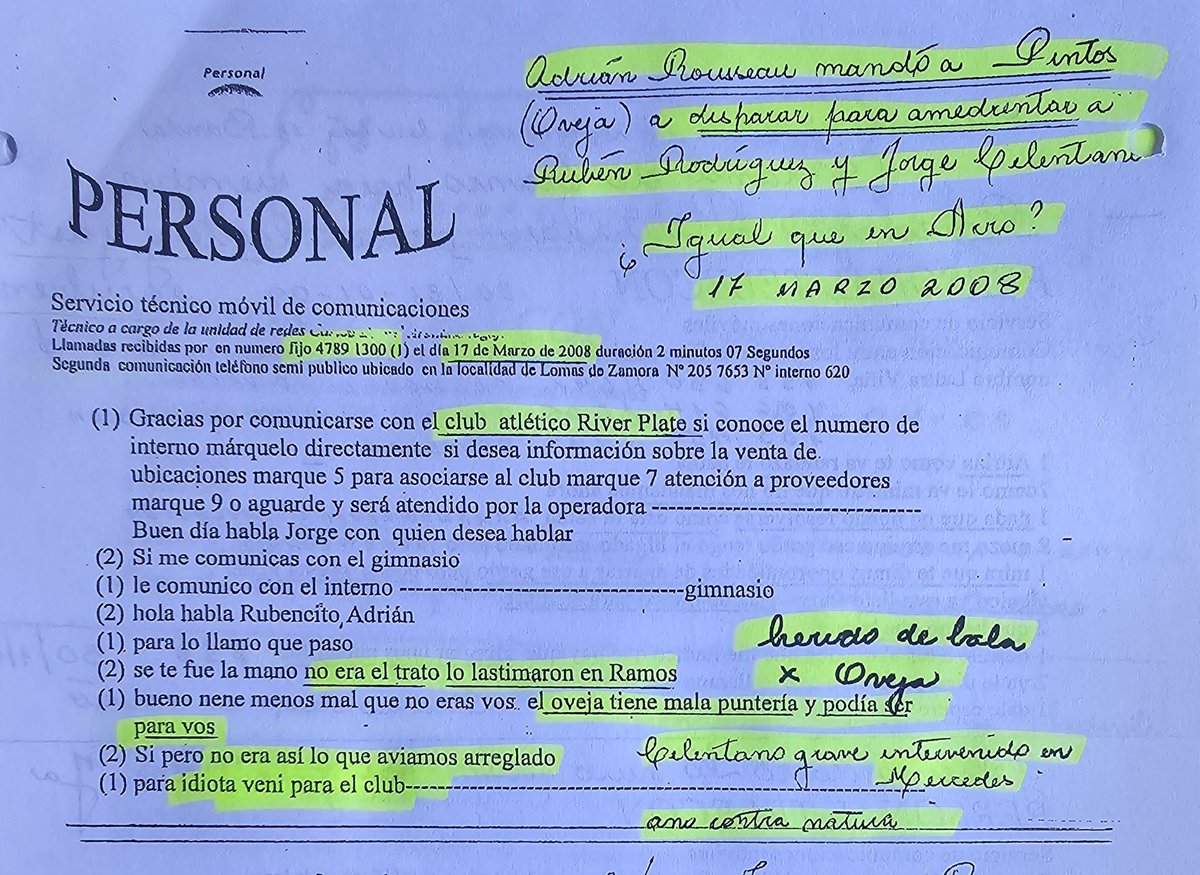 Personal
Adrián Rousseau mandó a Pintos
(Oveja) a disparar para amedrentar a
Rubén Rodríguez y Jorge Celentan
¿Igual que en Acro?
17 MARZO 2008
PERSONAL
Servicio técnico móvil de comunicaciones
Técnico a cargo de la unidad de redes
Llamadas recibidas por en numero fijo 4789 1300 (1) el día 17 de Marzo de 2008 duración 2 minutos 07 Segundos
Segunda comunicación teléfono semi publico ubicado en la localidad de Lomas de Zamora Nº 205 7653 Nº interno 620
(1) Gracias por comunicarse con el club atlético River Plate si conoce el numero de
interno márquelo directamente si desea información sobre la venta de
ubicaciones marque 5 para asociarse al club marque 7 atención a proveedores
marque 9 o aguarde y será atendido por la operadora --------------------------------
Buen día habla Jorge con quien desea hablar
(2) Si me comunicas con el gimnasio
(1) le comunico con el interno ----------------------------------gimnasio
(2) hola habla Rubencito, Adrián
(1) para lo llamo que paso
herido de bala
(2) se te fue la mano no era el trato lo lastimaron en Ramos
x Oveja
(1) bueno nene menos mal que no eras vos. el oveja tiene mala puntería y podía ser
para vos
(2) Si pero no era así lo que aviamos arreglado
Celentano grave intervenido en
Mercedes
(1) para idiota veni para el club----------------------------------------------------------------
ano contra natura